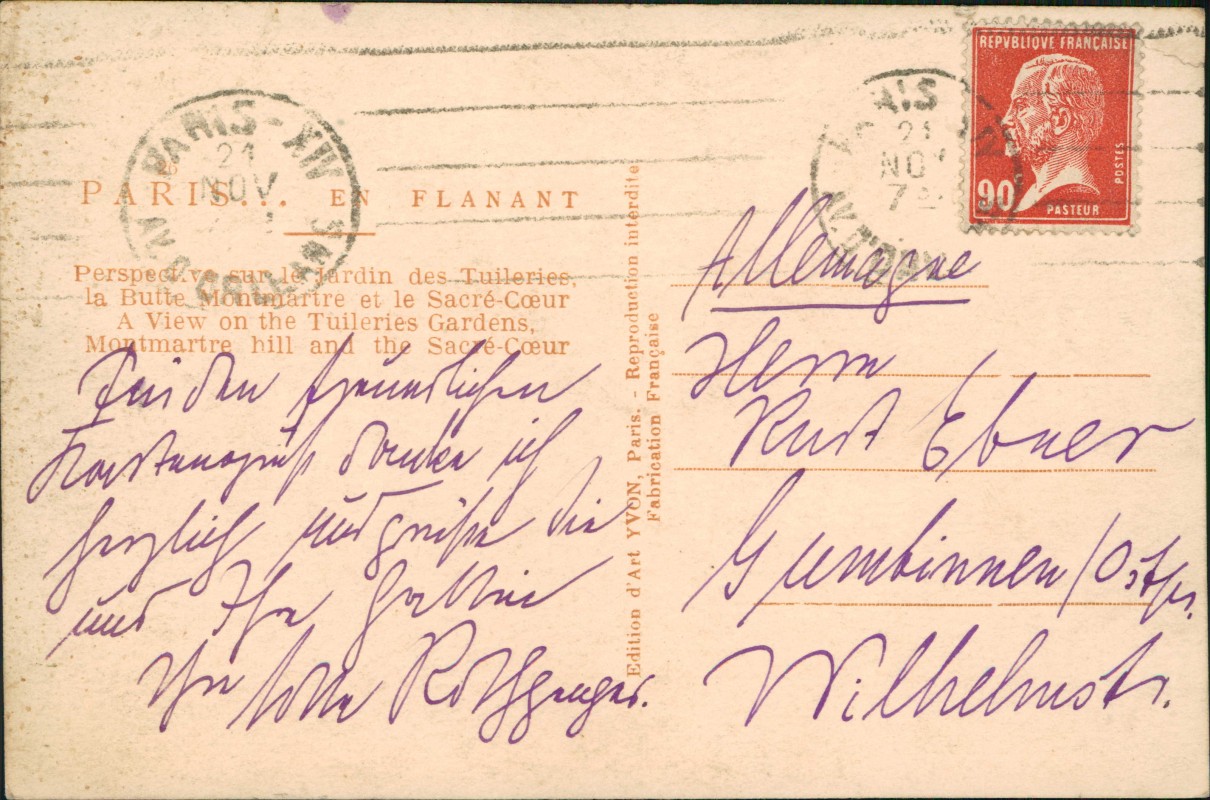 PARIS... EN FLANANT
Perspective sur le Jardin des Tuileries,
la Butte Montmartre et le Sacré-Cœur
A View on the Tuileries Gardens,
Montmartre hill and the Sacré-Cœur
Für den freundlichen
Kartengruß danke ich
herzlich und grüße Sie
und Ihre Gattin
Ihre Lotte
Edition d'Art YVON, Paris. - Reproduction interdite
Fabrication Française
PARIS-XVI
21
NOV
AV.
21
NOV
7
REPVBLIQVE FRANÇAISE
POSTES
90
PASTEUR
Allemagne
Herrn
Kurt Ebner
Gumbinnen / Ostpr.
Wilhelmstr.